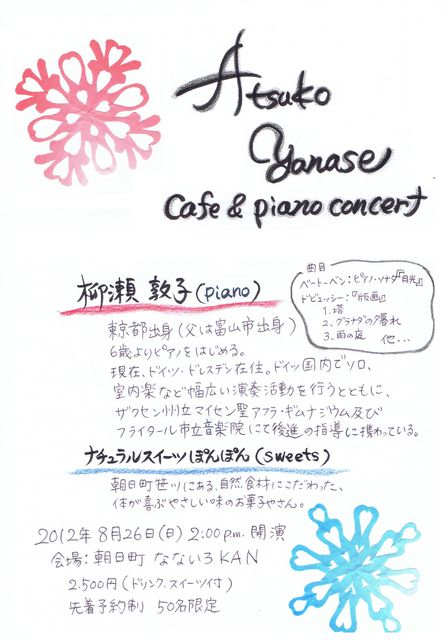 Atsuko
Yanase
Cafe & piano concert
曲目
ベートーベン:ピアノ・ソナタ『月光』
ドビュッシー:『版画』
1. 塔
2. グラナダの夕暮れ
3. 雨の庭
他...
柳瀬 敦子(piano)
東京都出身(父は富山市出身)
6歳よりピアノをはじめる。
現在、ドイツ・ドレスデン在住。ドイツ国内でソロ、
室内楽など幅広い演奏活動を行うとともに、
ザクセン州立マイセン聖アフラ・ギムナジウム及び
フライタール市立音楽院にて後進の指導に携わっている。
ナチュラルスイーツぽんぽん(sweets)
朝日町笹川にある、自然食材にこだわった、
体が喜ぶやさしい味のお菓子やさん。
2012年8月26日(日) 2:00 p.m. 開演
会場:朝日町 なないろKAN
2.500円(ドリンク、スイーツ付)
先着予約制 50名限定